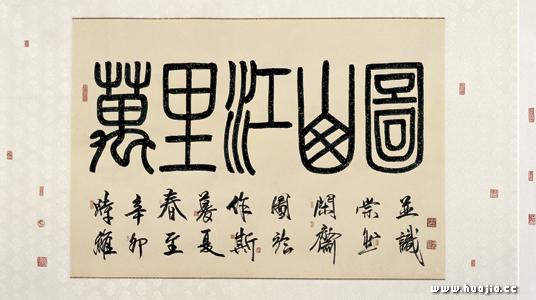 萬里江山圖
時維
辛卯
春至
暮夏
作斯
圖於
閑齋
並識
www.huajia.cc